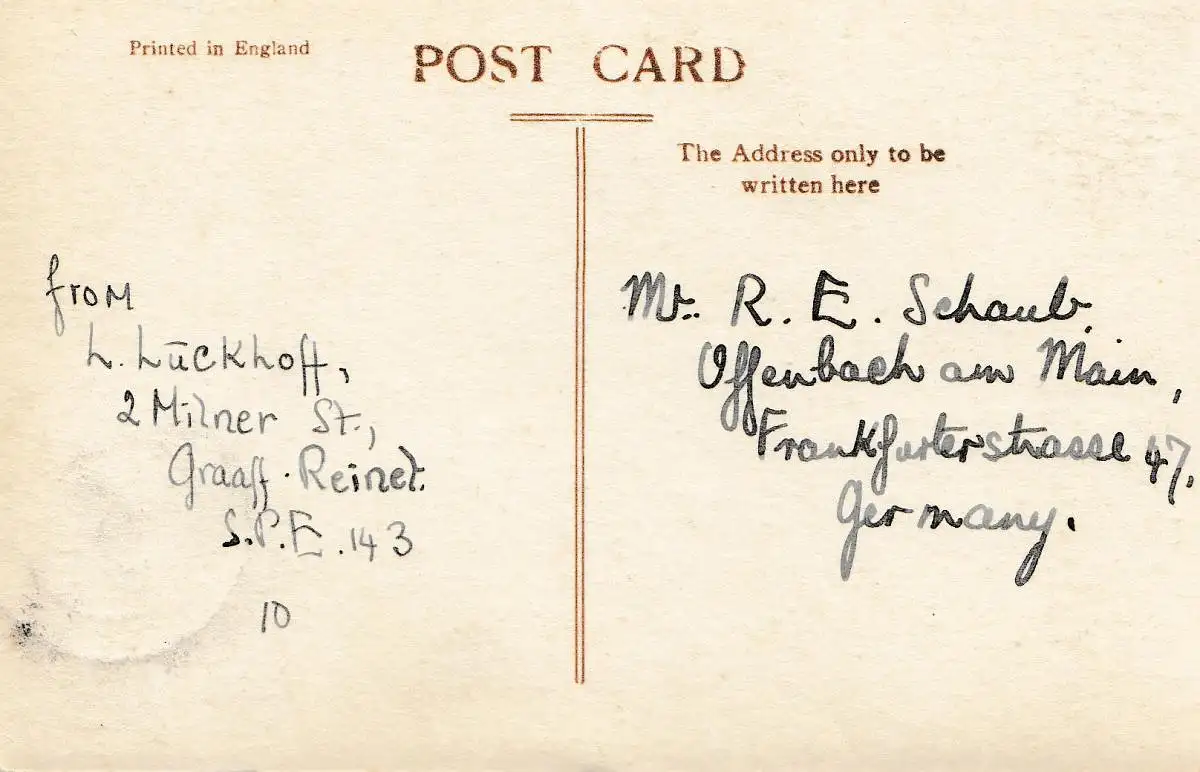 Printed in England
POST CARD
The Address only to be
written here
from
L. Lückhoff,
2 Milner St.,
Graaff-Reinet.
S.P.E. 143
10
Mr. R. E. Schaub,
Offenbach am Main,
Frankfurterstrasse 47,
Germany.